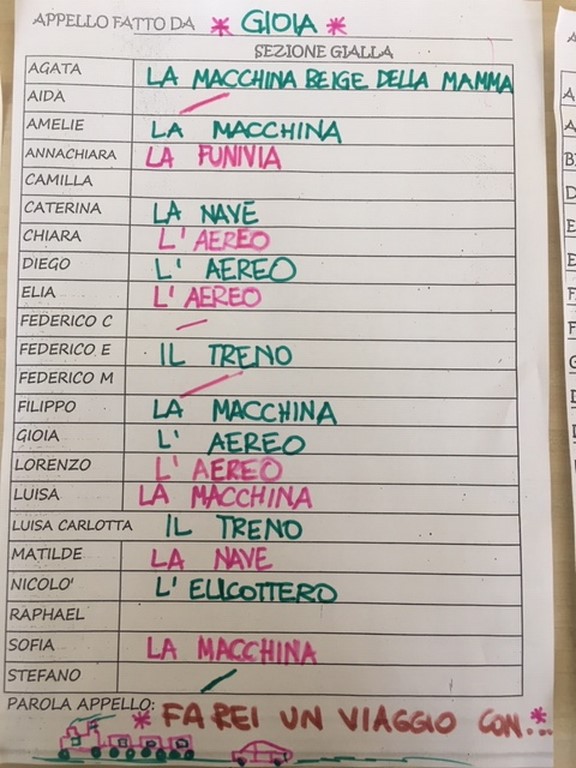 APPELLO FATTO DA * GIOIA *
SEZIONE GIALLA
AGATA LA MACCHINA BEIGE DELLA MAMMA
AIDA
AMELIE LA MACCHINA
ANNACHIARA LA FUNIVIA
CAMILLA
CATERINA LA NAVE
CHIARA L'AEREO
DIEGO L'AEREO
ELIA L'AEREO
FEDERICO C
FEDERICO E IL TRENO
FEDERICO M
FILIPPO LA MACCHINA
GIOIA L'AEREO
LORENZO L'AEREO
LUISA LA MACCHINA
LUISA CARLOTTA IL TRENO
MATILDE LA NAVE
NICOLO' L'ELICOTTERO
RAPHAEL
SOFIA LA MACCHINA
STEFANO
PAROLA APPELLO: * FAREI UN VIAGGIO CON...*